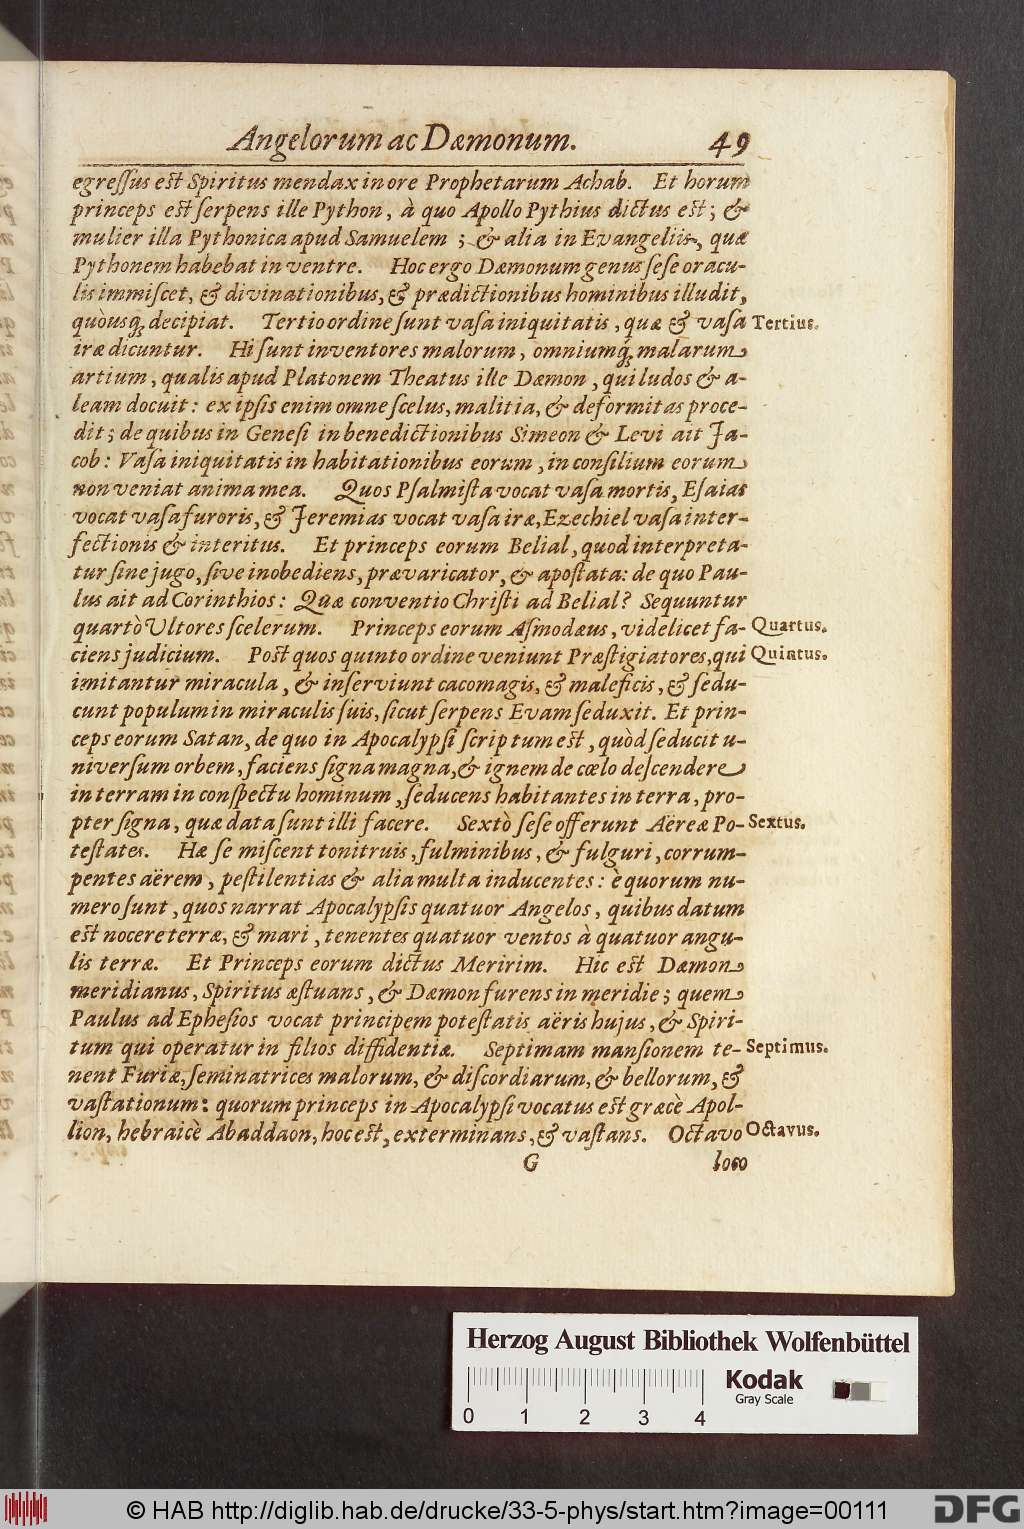 Angelorum ac Dæmonum. 49
egreſſus eſt Spiritus mendax in ore Prophetarum Achab. Et horum
princeps eſt ſerpens ille Python, à quo Apollo Pythius dictus est; &
mulier illa Pythonica apud Samuelem ; & alia in Evangeliis, quæ
Pythonem habebat in ventre. Hoc ergo Dæmonum genus ſeſe oracu-
lis immiſcet, & divinationibus, & prædictionibus hominibus illudit,
quòusq́; decipiat. Tertio ordine ſunt vaſa iniquitatis, quæ & vaſa Tertius.
iræ dicuntur. Hi ſunt inventores malorum, omniumq́; malarum
artium, qualis apud Platonem Theatus ille Dæmon, qui ludos & a-
leam docuit: ex ipſis enim omne ſcelus, malitia, & deformitas proce-
dit; de quibus in Geneſi in benedictionibus Simeon & Levi ait Ja-
cob: Vaſa iniquitatis in habitationibus eorum, in conſilium eorum
non veniat anima mea. Quos Pſalmiſta vocat vaſa mortis, Eſaias
vocat vaſa furoris, & Jeremias vocat vaſa iræ, Ezechiel vaſa inter-
fectionis & interitus. Et princeps eorum Belial, quod interpreta-
tur ſine jugo, ſive inobediens, prævaricator, & apoſtata: de quo Pau-
lus ait ad Corinthios: Quæ conventio Chriſti ad Belial? Sequuntur
quartò Ultores ſcelerum. Princeps eorum Aſmodæus, videlicet fa- Quartus.
ciens judicium. Poſt quos quinto ordine veniunt Præſtigiatores, qui Quintus.
imitantur miracula, & inſerviunt cacomagis, & maleficis, & ſedu-
cunt populum in miraculis ſuis, ſicut ſerpens Evam ſeduxit. Et prin-
ceps eorum Satan, de quo in Apocalypſi ſcriptum eſt, quòd ſeducit u-
niverſum orbem, faciens ſigna magna, & ignem de cœlo deſcendere
in terram in conſpectu hominum, ſeducens habitantes in terra, pro-
pter ſigna, quæ data ſunt illi facere. Sextò ſeſe offerunt Aëreæ Po- Sextus.
teſtates. Hæ ſe miſcent tonitruis, fulminibus, & fulguri, corrum-
pentes aërem, peſtilentias & alia multa inducentes: è quorum nu-
mero ſunt, quos narrat Apocalypſis quatuor Angelos, quibus datum
eſt nocere terræ, & mari, tenentes quatuor ventos à quatuor angu-
lis terræ. Et Princeps eorum dictus Meririm. Hic eſt Dæmon
meridianus, Spiritus æſtuans, & Dæmon furens in meridie; quem
Paulus ad Epheſios vocat principem poteſtatis aëris hujus, & Spiri-
tum qui operatur in filios diffidentiæ. Septimam manſionem te- Septimus.
nent Furiæ, ſeminatrices malorum, & diſcordiarum, & bellorum, &
vaſtationum: quorum princeps in Apocalypſi vocatus eſt græcè Apol-
lion, hebraicè Abaddaon, hoc eſt, exterminans, & vaſtans. Octavo Octavus.
G loco
Herzog August Bibliothek Wolfenbüttel
Kodak
Gray Scale
0 1 2 3 4
© HAB http://diglib.hab.de/drucke/33-5-phys/start.htm?image=00111
DFG